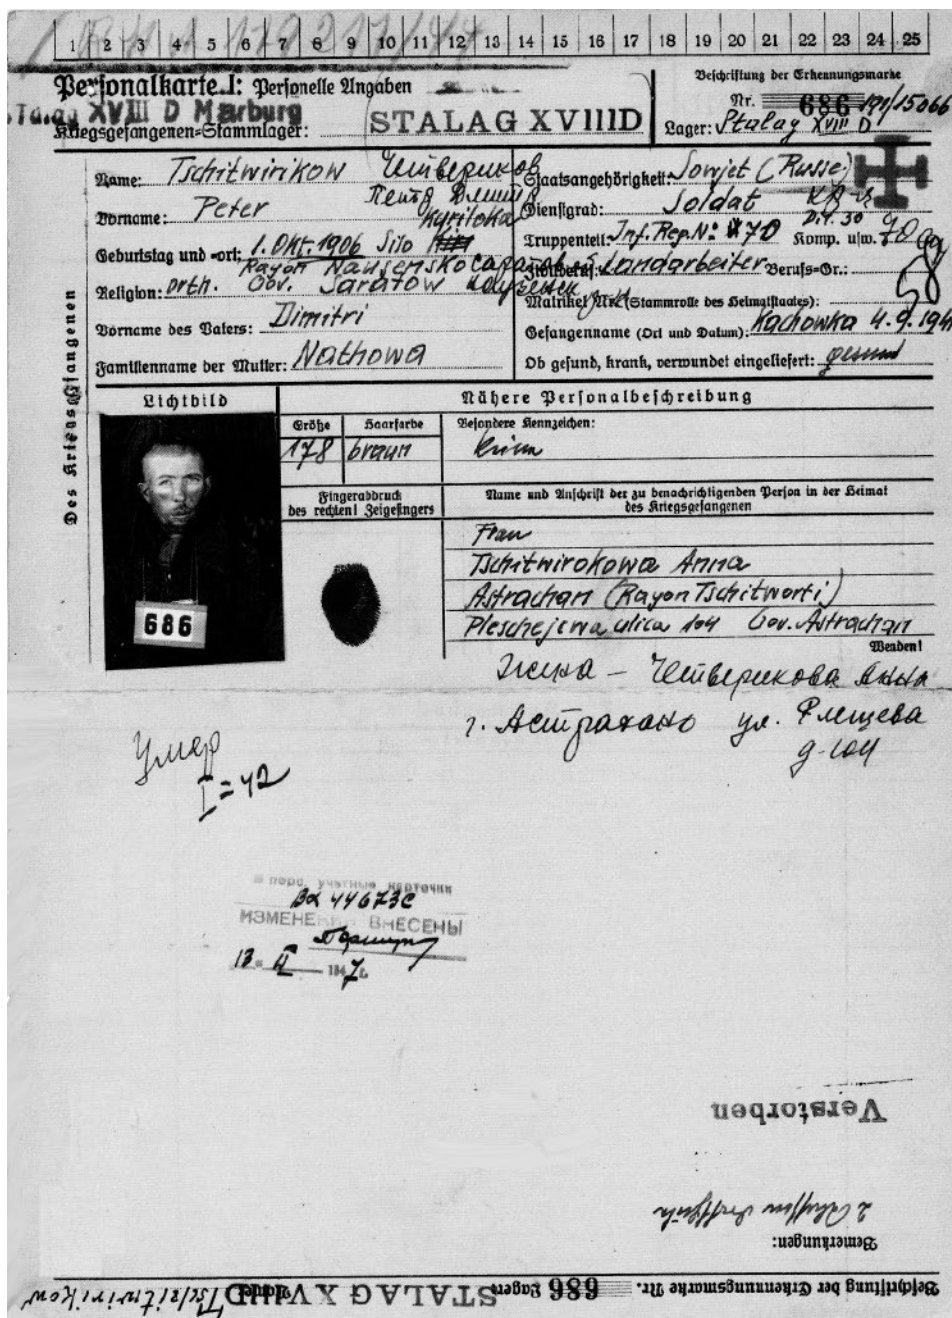 1 2 3 4 5 6 7 8 9 10 11 12 13 14 15 16 17 18 19 20 21 22 23 24 25
Personalkarte I: Personelle Angaben
Stalag XVIII D Marburg
Kriegsgefangenen-Stammlager: STALAG XVIIID
Beschriftung der Erkennungsmarke
Nr. 686 191/15066
Lager: Stalag XVIII D
Des Kriegsgefangenen
Name: Tschitwirikow Четвериков
Vorname: Peter Петр
Geburtstag und -ort: 1. Okt. 1906 Silo
Rayon
Religion: orth. Gov. Saratow
Vorname des Vaters: Dimitri
Familienname der Mutter: Nathowa
Staatsangehörigkeit: Sowjet (Russe)
Dienstgrad: Soldat
Truppenteil: Inf. Reg. N: 770 Komp. usw.
Zivilberuf: Landarbeiter Berufs-Gr.:
Matrikel Nr. (Stammrolle des Heimatstaates):
Gefangennahme (Ort und Datum): Kachowka 4.9.1941
Ob gesund, krank, verwundet eingeliefert: gesund
Lichtbild
686
Nähere Personalbeschreibung
Größe Haarfarbe Besondere Kennzeichen:
178 braun keine
Fingerabdruck
des rechten! Zeigefingers
Name und Anschrift der zu benachrichtigenden Person in der Heimat
des Kriegsgefangenen
Frau
Tschitwirokowa Anna
Astrachan (Rayon Tschitworti)
Pleschejewa ulica 104 Gov. Astrachan
Wenden!
Жена – Четверикова Анна
г. Астрахань ул. Плещева
д-104
Умер
I=42
В перс. учетные карточки
ИЗМЕНЕНИЯ ВНЕСЕНЫ
13 1947г.
Verstorben
Bemerkungen:
Beschriftung der Erkennungsmarke Nr. 686 Lager: STALAG XVIIID Name: Tschitwirikow